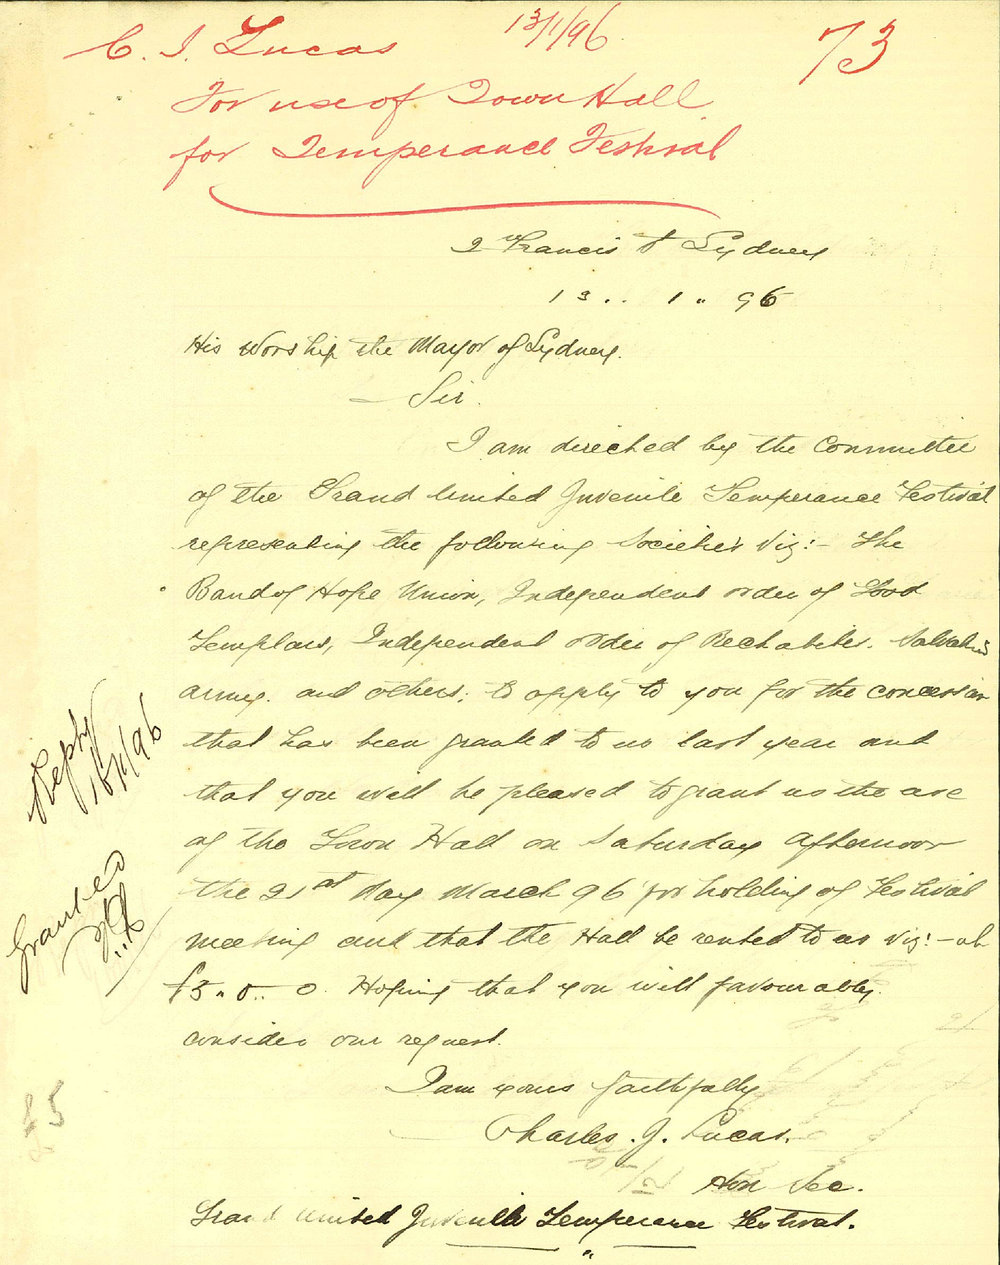 C. J. Lucas 13/1/96. 73
For use of Town Hall
for Temperance Festival
2 Francis St Sydney
13 .. 1 .. 96
His Worship the Mayor of Sydney.
Sir.
I am directed by the Committee
of the Grand United Juvenile Temperance Festival
representing the following Societies Viz:- The
Band of Hope Union, Independent order of Good
Templars, Independent order of Rechabites. Salvation
army. and others; to apply to you for the concession
that has been granted to us last year and
that you will be pleased to grant us the use
of the Town Hall on Saturday afternoon
the 21st day March 96 for holding of Festival
meeting and that the Hall be rented to us viz:- at
Reply
/1/96
Granted
£5 .. 0 .. 0. Hoping that you will favourably
consider our request.
I am yours faithfully
£5
Charles. J. Lucas.
Hon Sec.
Grand United Juvenile Temperance Festival.